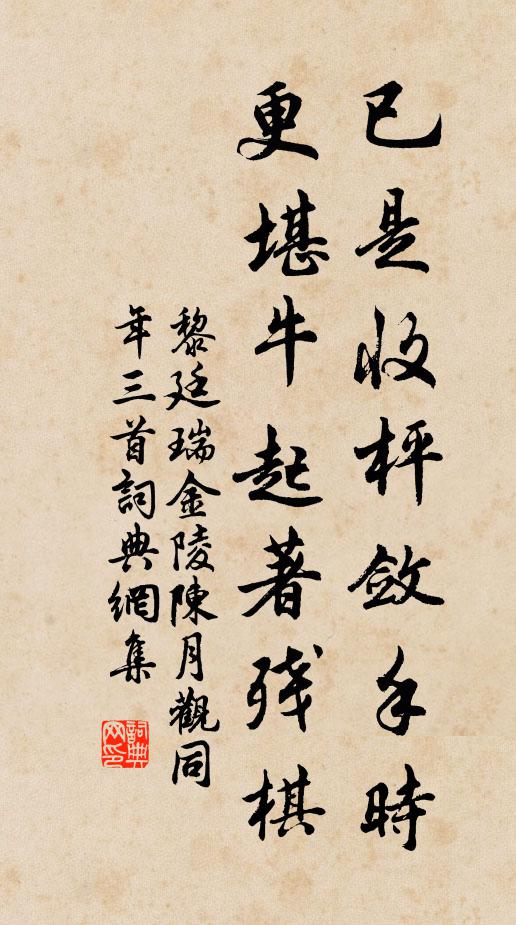 已是收枰斂手時
更堪牛起著残棋
黎廷瑞金陵陳月觀同
年三首詞典網集
詞典网印